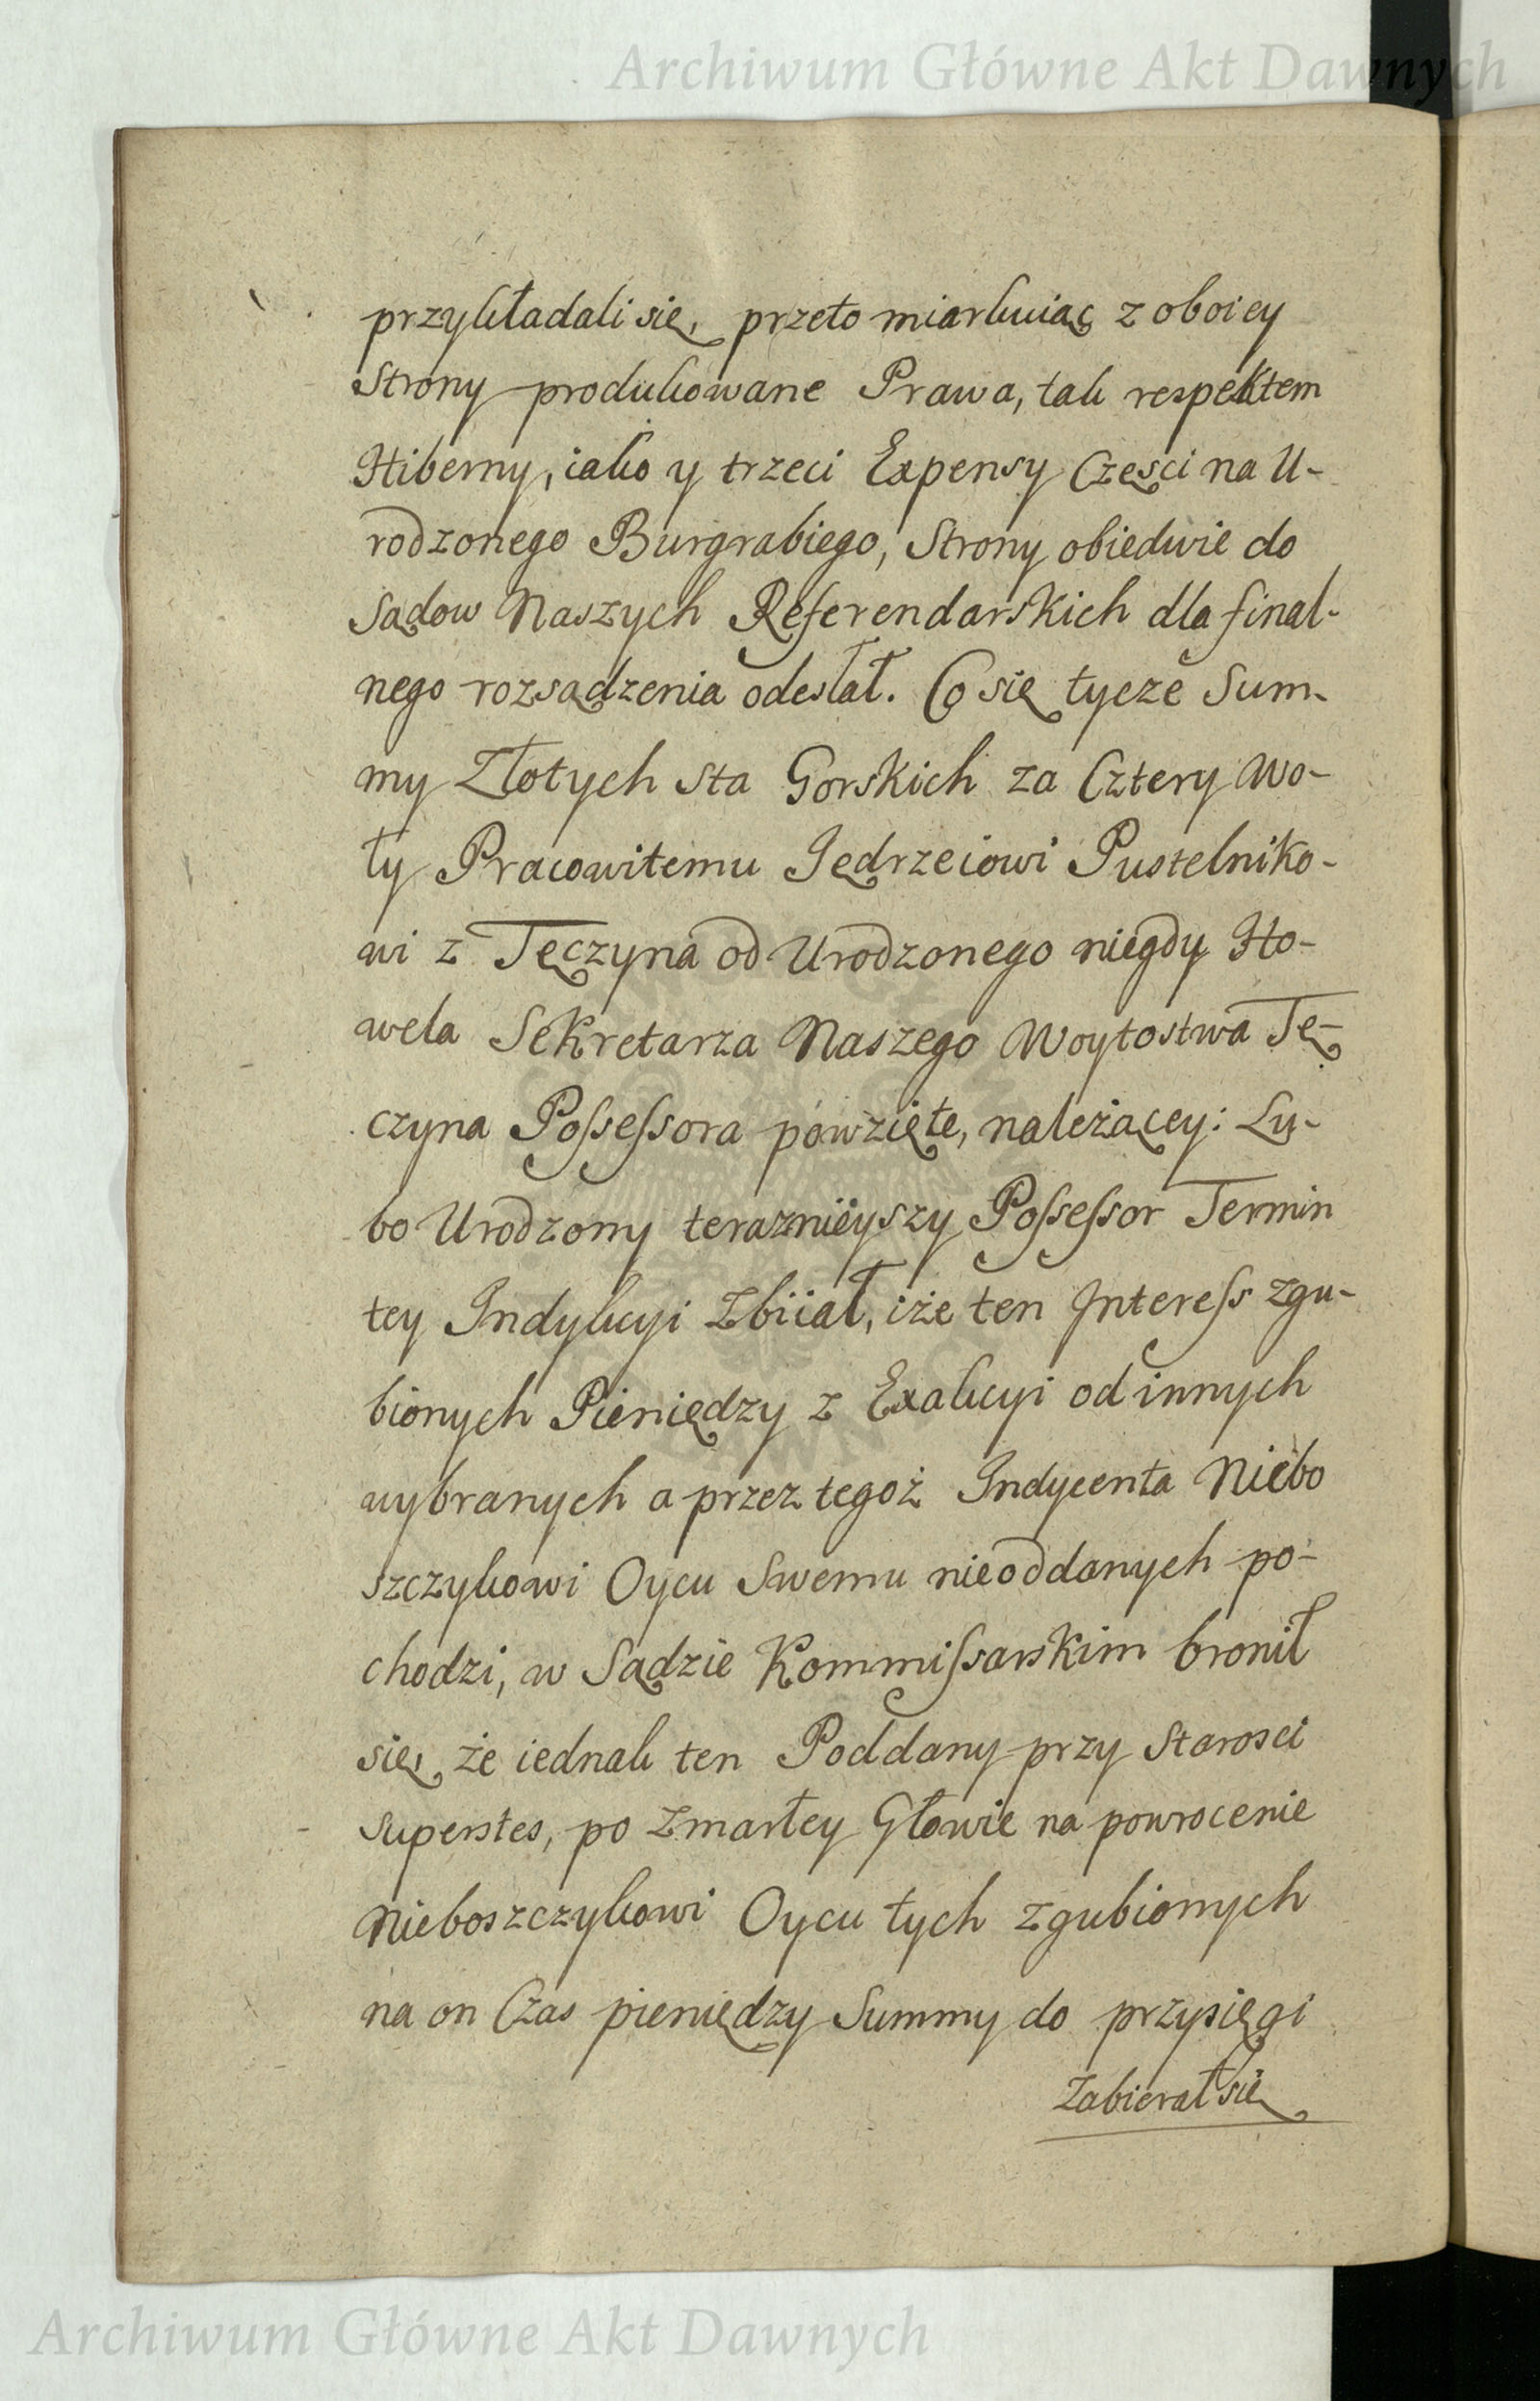 Archiwum Główne Akt Dawnych
przykładali się, przeto miarkuiąc z oboiey
Strony produkowane Prawa, tak respektem
Hiberny, iako y trzeci Expensy Częsci na U-
rodzonego Burgrabiego, Strony obiedwie do
Sądow Naszych Referendarskich dla final-
nego rozsądzenia odesłał. Co się tycze Sum-
my Złotych sta Gorskich za Cztery Wo-
ły Pracowitemu Jędrzeiowi Pustelniko-
wi z Tęczyna od Urodzonego niegdy Ho-
wela Sekretarza Naszego Woytostwa Tę-
czyna Possessora powzięte, należącey: Lu-
bo Urodzony teraznieyszy Possessor Termin
tey Indykcyi Zbiiał, iże ten Interess zgu-
bionych Pieniędzy z Exakcyi od innych
wybranych a przez tegoż Indycenta Niebo
szczykowi Oycu Swemu nieoddanych po-
chodzi, w Sądzie Kommissarskim bronił
się, że iednak ten Poddany przy Starosci
Superstes, po Zmarłey Głowie na powrocenie
Nieboszczykowi Oycu tych zgubionych
na on Czas pieniędzy Summy do przysięgi
Zabierał się
Archiwum Główne Akt Dawnych